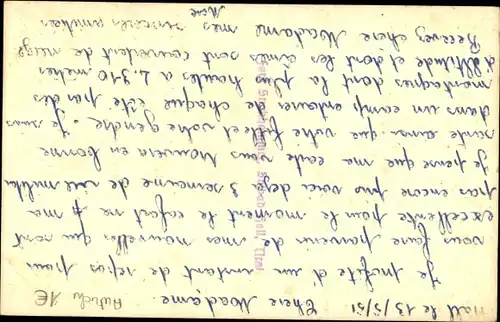 Hall le 13/5/51
Chère Madame.
Je profite d'un instant de repos pour
vous faire parvenir de mes nouvelles qui sont
excellente pour le moment le cafart ne ma
pas encore pris voici deja 3 semaine de vie militair
je pense que ma carte vous trouvera en bonne
sante ainsi que votre fille et votre gendre. Je suis
dans un camp entourer de chaque côté par des
montagnes dont la plus hautes a 2.310 mètres
d'altitude et dont les cimes sont couvertent de neige
Recevez chere Madame mes sinceres amities
Autich 1€